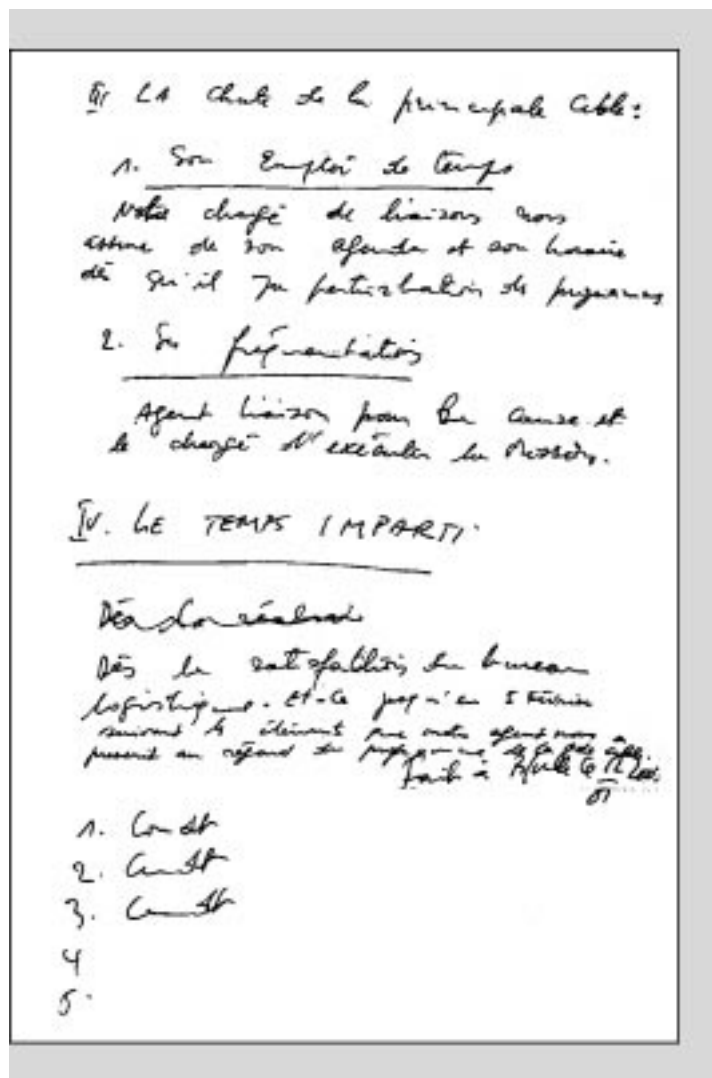 III LA chute de la principale cible:
1. Son Emploi de temps
Notre chargé de liaison nous
assure de son agenda et son horaire
dès qu'il perturbation de programmes
2. Ses fréquentations
Agent liaison pour la cause et
le chargé d'exécuter la Mission.
IV. LE TEMPS IMPARTI
Dès la satisfaction du bureau
logistique. Et-ce jusqu'au 5 Février
suivant les élément que notre agent nous a
au regard du programme de la
Fait à le
1. Comdt
2. Comdt
3. Comdt
4
5.